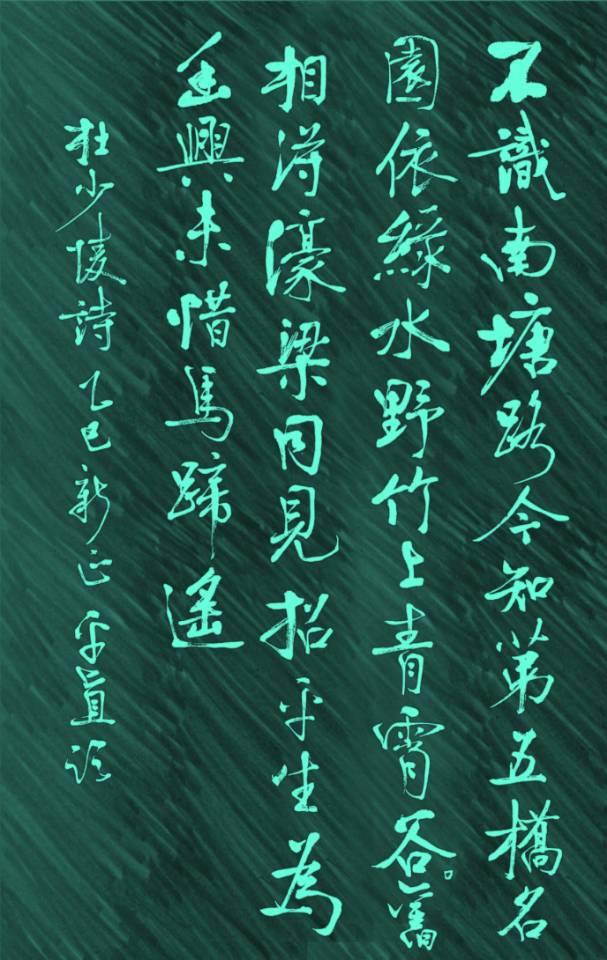 不識南塘路今知第五橋名
園依綠水野竹上青霄谷口舊
相得濠梁同見招平生為
幽興未惜馬蹄遙
杜少陵詩 乙巳新正 平